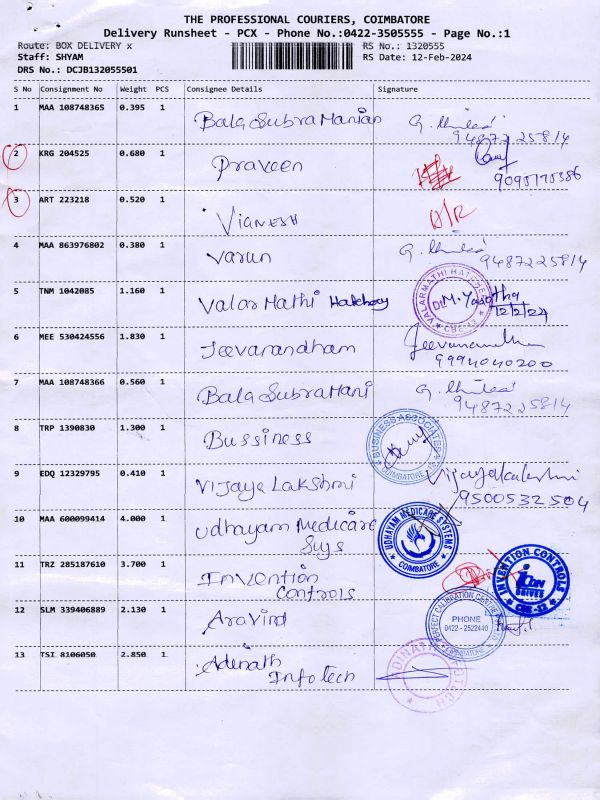 THE PROFESSIONAL COURIERS, COIMBATORE
Delivery Runsheet - PCX - Phone No.:0422-3505555 - Page No.:1
Route: BOX DELIVERY x RS No.: 1320555
Staff: SHYAM RS Date: 12-Feb-2024
DRS No.: DCJB132055501
S No Consignment No Weight PCS Consignee Details Signature
1 MAA 108748365 0.395 1 Bala SubraManian 9487225814
2 KRG 204525 0.680 1 Praveen
3 ART 223218 0.520 1 Vignesh
4 MAA 863976802 0.380 1 Varun 9487225814
5 TNM 1042085 1.160 1 Valar Mathi Hatchery M. Yasotha 12/2/24
6 MEE 530424556 1.830 1 Jeevanandham 9994040200
7 MAA 108748366 0.560 1 Bala SubraMani 9487225814
8 TRP 1390830 1.300 1 Bussiness BUSINESS ASSOCIATES COIMBATORE
9 EDQ 12329795 0.410 1 Vijaya Lakshmi 9500532504
10 MAA 600099414 4.000 1 Udhayam Medicare Sys UDHAYAM MEDICARE SYSTEMS COIMBATORE
11 TRZ 285187610 3.700 1 Invention Controls INVENTION CONTROLS DRIVES CBE-12
12 SLM 339406889 2.130 1 Aravind PHONE 0422 - 2522440
13 TSI 8106050 2.850 1 Adinath Infotech